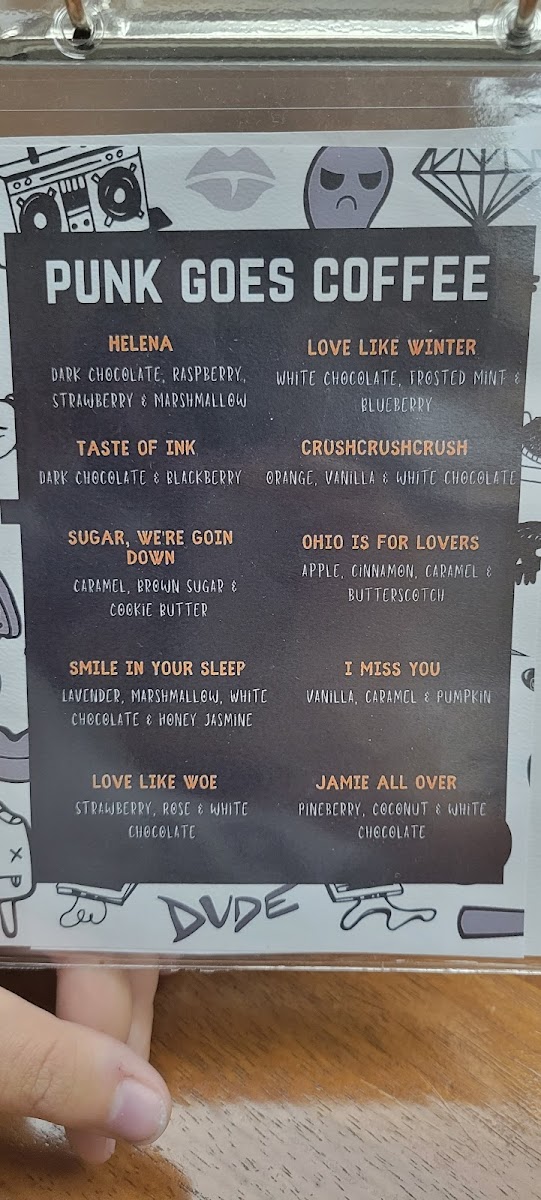 PUNK GOES COFFEE
HELENA
DARK CHOCOLATE, RASPBERRY,
STRAWBERRY & MARSHMALLOW
LOVE LIKE WINTER
WHITE CHOCOLATE, FROSTED MINT &
BLUEBERRY
TASTE OF INK
DARK CHOCOLATE & BLACKBERRY
CRUSHCRUSHCRUSH
ORANGE, VANILLA & WHITE CHOCOLATE
SUGAR, WE'RE GOIN
DOWN
CARAMEL, BROWN SUGAR &
COOKIE BUTTER
OHIO IS FOR LOVERS
APPLE, CINNAMON, CARAMEL &
BUTTERSCOTCH
SMILE IN YOUR SLEEP
LAVENDER, MARSHMALLOW, WHITE
CHOCOLATE & HONEY JASMINE
I MISS YOU
VANILLA, CARAMEL & PUMPKIN
LOVE LIKE WOE
STRAWBERRY, ROSE & WHITE
CHOCOLATE
JAMIE ALL OVER
PINEBERRY, COCONUT & WHITE
CHOCOLATE
DUDE